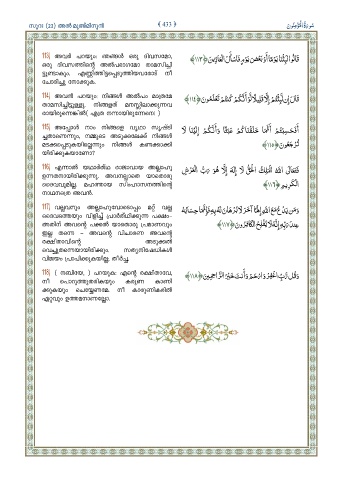 സൂറ (23) അൽമുഅ്മിനൂൻ
( 433 )
سُورَةُ الْمُؤْمِنُون
113) അവർ പറയും: ഞങ്ങൾ ഒരു ദിവസമോ,
ഒരു ദിവസത്തിന്റെ അൽപഭാഗമോ താമസിച്ചി
ട്ടുണ്ടാകും. എണ്ണിത്തിട്ടപ്പെടുത്തിയവരോട് നീ
ചോദിച്ചു നോക്കുക.
قَالُوا لَبِثْنَا يَوْمًا أَوْ بَعْضَ يَوْمٍ فَاسْأَلِ الْعَادِّينَ ﴿١١٣﴾
114) അവൻ പറയും: നിങ്ങൾ അൽപം മാത്രമേ
താമസിച്ചിട്ടുള്ളൂ. നിങ്ങളത് മനസ്സിലാക്കുന്നവ
രായിരുന്നെങ്കിൽ( എത്ര നന്നായിരുന്നേനേ! )
قَالَ إِن لَّبِثْتُمْ إِلَّا قَلِيلًا لَّوْ أَنَّكُمْ كُنتُمْ تَعْلَمُونَ ﴿١١٤﴾
115) അപ്പോൾ നാം നിങ്ങളെ വൃഥാ സൃഷ്ടി
ച്ചതാണെന്നും, നമ്മുടെ അടുക്കലേക്ക് നിങ്ങൾ
മടക്കപ്പെടുകയില്ലെന്നും നിങ്ങൾ കണക്കാക്കി
യിരിക്കുകയാണോ?
أَفَحَسِبْتُمْ أَنَّمَا خَلَقْنَاكُمْ عَبَثًا وَأَنَّكُمْ إِلَيْنَا لَا
تُرْجَعُونَ ﴿١١٥﴾
116) എന്നാൽ യഥാർത്ഥ രാജാവായ അല്ലാഹു
ഉന്നതനായിരിക്കുന്നു. അവനല്ലാതെ യാതൊരു
ദൈവവുമില്ല. മഹത്തായ സിംഹാസനത്തിന്റെ
നാഥനത്രെ അവൻ.
فَتَعَالَى اللَّهُ الْمَلِكُ الْحَقُّ لَا إِلَهَ إِلَّا هُوَ رَبُّ الْعَرْشِ
الْكَرِيمِ ﴿١١٦﴾
117) വല്ലവനും അല്ലാഹുവോടൊപ്പം മറ്റ് വല്ല
ദൈവത്തെയും വിളിച്ച് പ്രാർത്ഥിക്കുന്ന പക്ഷം -
അതിന് അവന്റെ പക്കൽ യാതൊരു പ്രമാണവും
ഇല്ല തന്നെ - അവന്റെ വിചാരണ അവന്റെ
രക്ഷിതാവിന്റെ അടുക്കൽ
വെച്ചുതന്നെയായിരിക്കും. സത്യനിഷേധികൾ
വിജയം പ്രാപിക്കുകയില്ല; തീർച്ച.
وَمَن يَدْعُ مَعَ اللَّهِ إِلَهًا آخَرَ لَا بُرْهَانَ لَهُ بِهِ فَإِنَّمَا حِسَابُهُ
عِندَ رَبِّهِ إِنَّهُ لَا يُفْلِحُ الْكَافِرُونَ ﴿١١٧﴾
118) ( നബിയേ, ) പറയുക: എന്റെ രക്ഷിതാവേ,
നീ പൊറുത്തുതരികയും കരുണ കാണി
ക്കുകയും ചെയ്യേണമേ. നീ കാരുണികരിൽ
ഏറ്റവും ഉത്തമനാണല്ലോ.
وَقُل رَّبِّ اغْفِرْ وَارْحَمْ وَأَنتَ خَيْرُ الرَّاحِمِينَ ﴿١١٨﴾